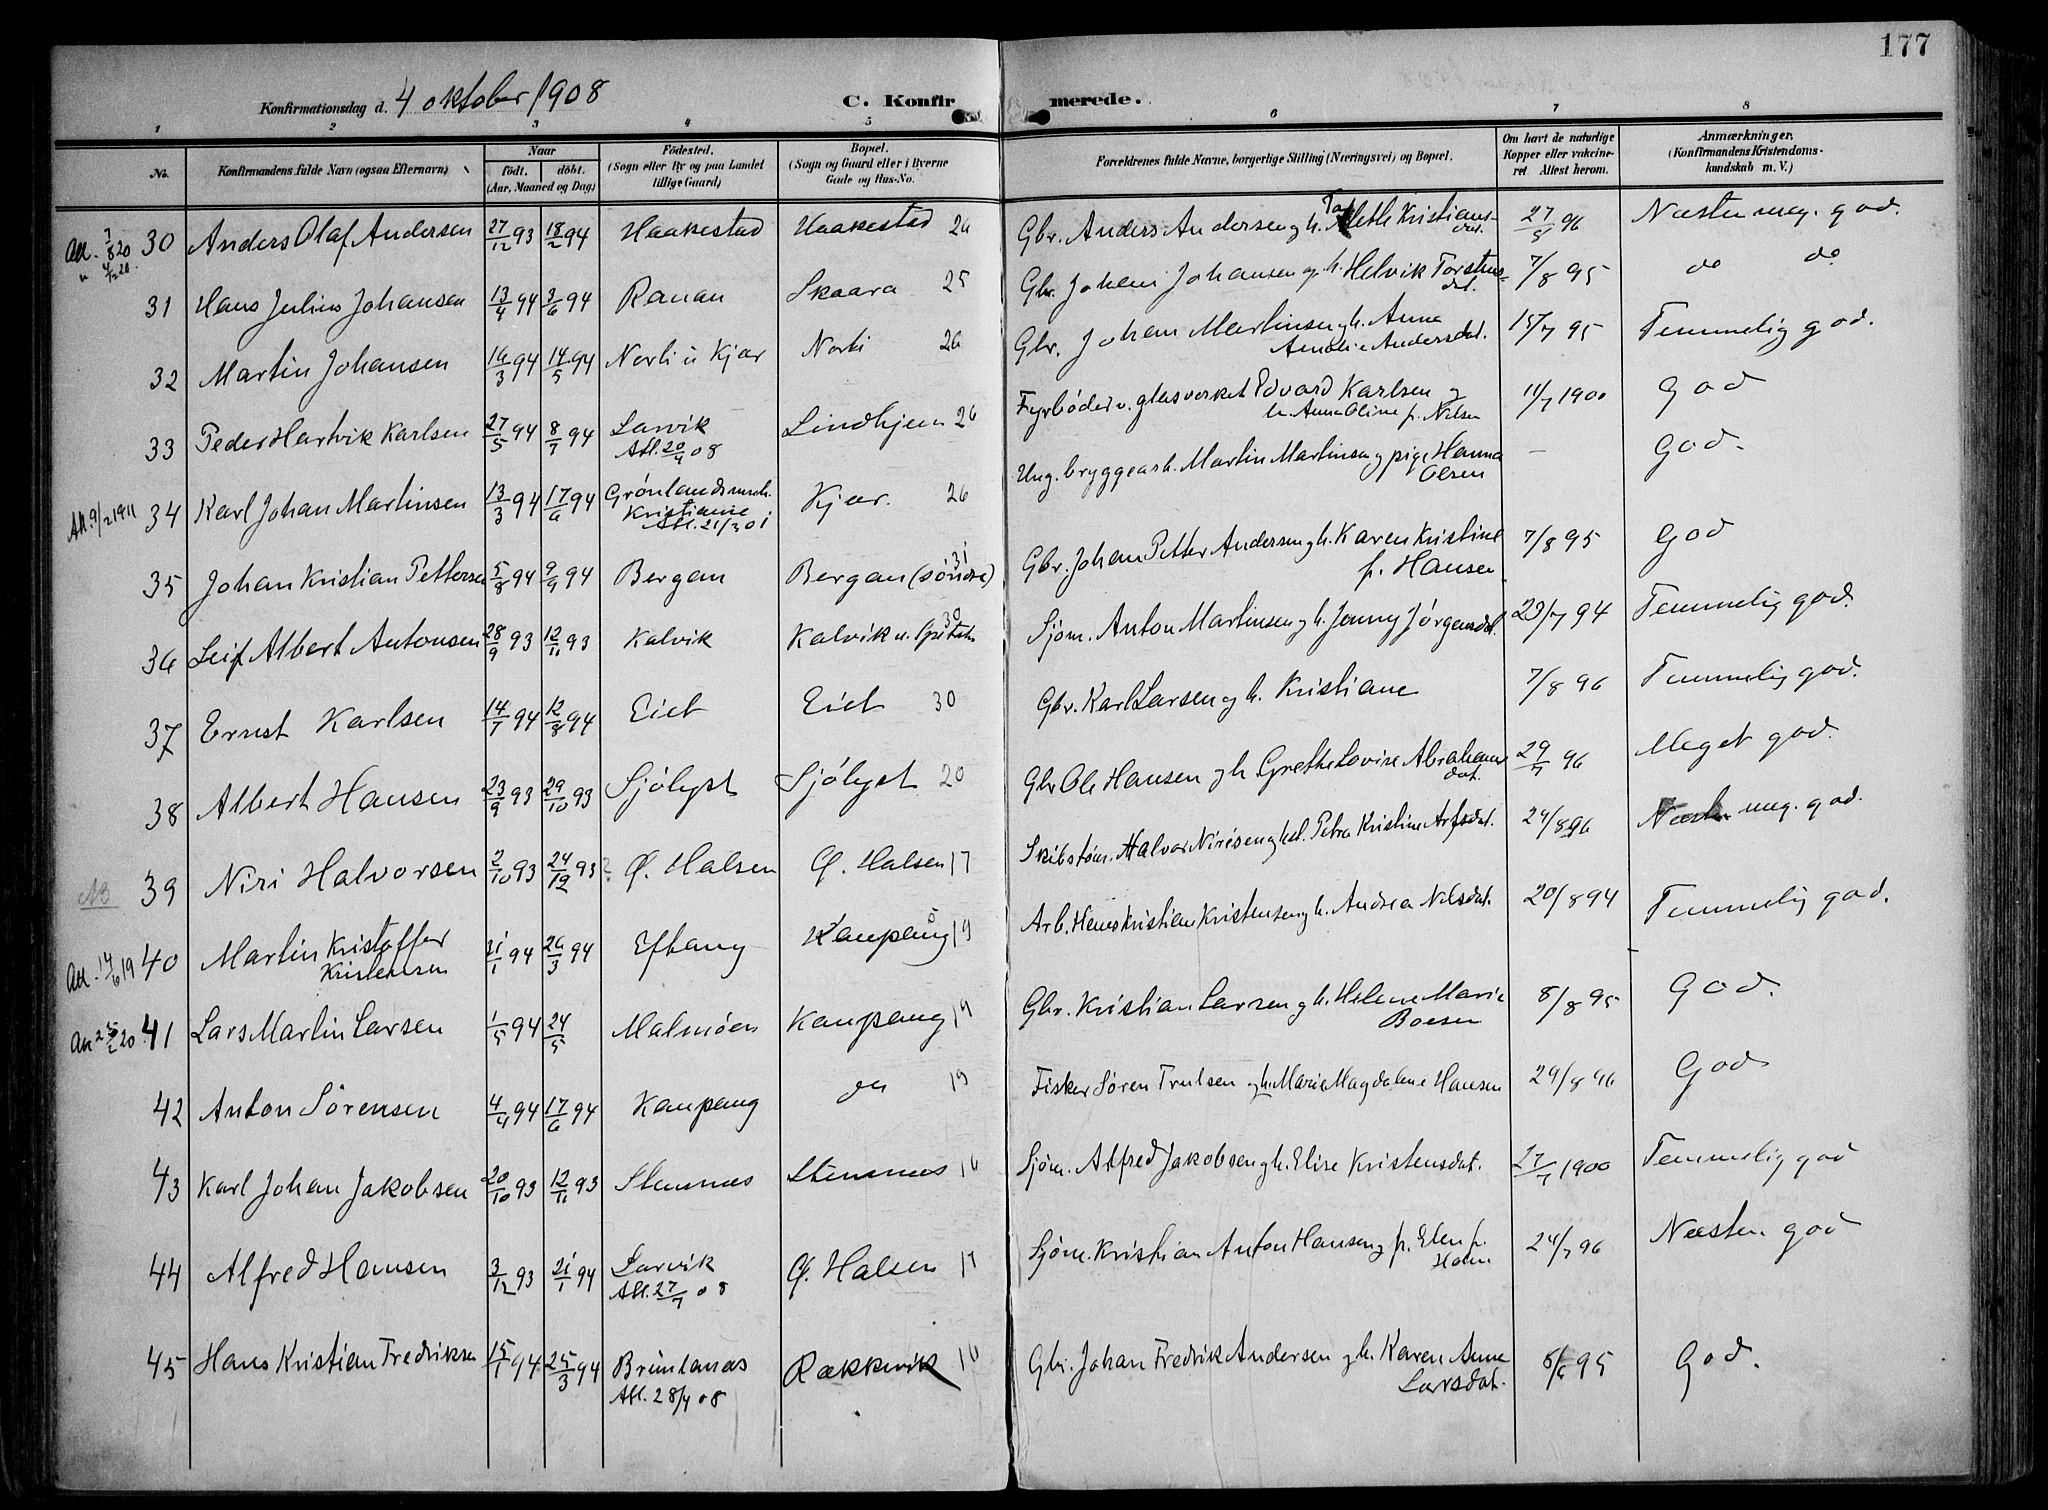 177
Konfirmationsdag d. 4 oktober 1908
C. Konfirmerede.
1 2 3 4 5 6 7 8
No.
Konfirmandens fulde Navn (ogsaa Efternavn)
Naar
født. døbt.
(Aar, Maaned og Dag)
Fødested.
(Sogn eller By og paa Landet
tillige Gaard)
Bopæl.
(Sogn og Gaard eller i Byerne
Gade og Hus-No.
Forældrenes fulde Navne, borgerlige Stilling (Næringsvei) og Bopæl.
Om havt de naturlige
Kopper eller vakcine-
ret Attest herom.
Anmærkninger.
(Konfirmandens Kristendoms-
kundskab m. V.)
30 Anders Olaf Andersen 27/12 93 18/2 94 Haakestad Haakestad 26 Gbr. Anders Andersen og h. Kristians-dat. 27/8 96 Næsten meg. god.
31 Hans Julius Johansen 13/4 94 3/6 94 Ranan Skaara 25 Gbr. Johan Johansen og h. Helvik Torstensdat. 7/8 95 do do
32 Martin Johansen 16/3 94 14/5 94 Norli u Kjær Norli 26 Gbr. Johan Martinsen og h. Anna
Amalie Andersdat. 15/7 95 Temmelig god.
33 Peder Hartvik Karlsen 27/5 94 8/7 94 Larvik
Att. 20/4 08 Lindhjem 26 Fyrbøder v. glasverket Edvard Karlsen og
h. Anna Oline f. Nilsen 11/7 1900 God
Att. 9/2 1911 34 Karl Johan Martinsen 13/3 94 17/6 94 Grønlands
Kristiania
Att. 21/3 01 Kjær. 26 Ung. bryggearb. Martin Martinsen og pige Hanna
Olsen — God.
35 Johan Kristian Pettersen 5/8 94 9/9 94 Bergan Bergan (søndre) 31 Gbr. Johan Petter Andersen og h. Karen Kristine
f. Hansen 7/8 95 God
36 Leif Albert Antonsen 28/9 93 12/11 93 Kalvik Kalvik u. 30 Sjøm. Anton Martinsen og h. Jenny Jørgensdat. 23/7 94 Temmelig god.
37 Ernst Karlsen 14/7 94 12/8 94 Eiet Eiet 30 Gbr. Karl Larsen og h. Kristiane 7/8 96 Temmelig god.
38 Albert Hansen 23/9 93 29/10 93 Sjølyst Sjølyst 20 Gbr. Ole Hansen og h Grethe Lovise Abrahams
dat. 29/7 96 Meget god.
NB 39 Niri Halvorsen 2/10 93 24/12 93 Ø. Halsen Ø. Halsen 17 Skibstøm. Halvor Nirisen og h. Petra Kristine 24/8 96 Næsten meg. god.
An. 14/6 19 40 Martin Kristoffer
Kristensen 31/1 94 26/3 94 Eftang Kaupang 19 Arb. Hans Kristian Kristensen og h. Andrea Nilsdat. 20/8 94 Temmelig god.
41 Lars Martin Larsen 1/5 94 24/5 Malmøen Kaupang 19 Gbr. Kristian Larsen og h. Helene Marie
Boesen 8/8 95 God.
42 Anton Sørensen 4/4 94 17/6 94 Kaupang do 19 Fisker Søren Trulsen og h. Marie Magdalene Hansen 29/8 96 God
43 Karl Johan Jakobsen 20/10 93 12/11 93 Stensnes Stensnes 16 Sjøm. Alfred Jakobsen og h. Elise Kristensdat. 27/7 1900 Temmelig god
44 Alfred Hansen 3/12 93 21/1 94 Larvik
Att. 27/7 08 Ø. Halsen 17 Sjøm. Kristian Anton Hansen og p. Elen f.
Holm 24/7 96 Næsten god
45 Hans Kristian Fredriksen 15/1 94 25/3 94 Brunlanæs
Att. 28/4 08 Rækkevik 16 Gbr. Johan Fredrik Andersen og h. Karen Anne
Larsdat. 95 God.